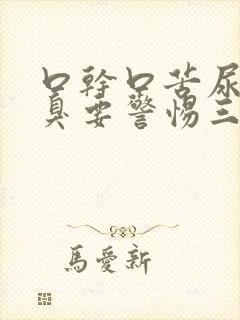 口幹口苦尿
真要警惕三
馬愛新